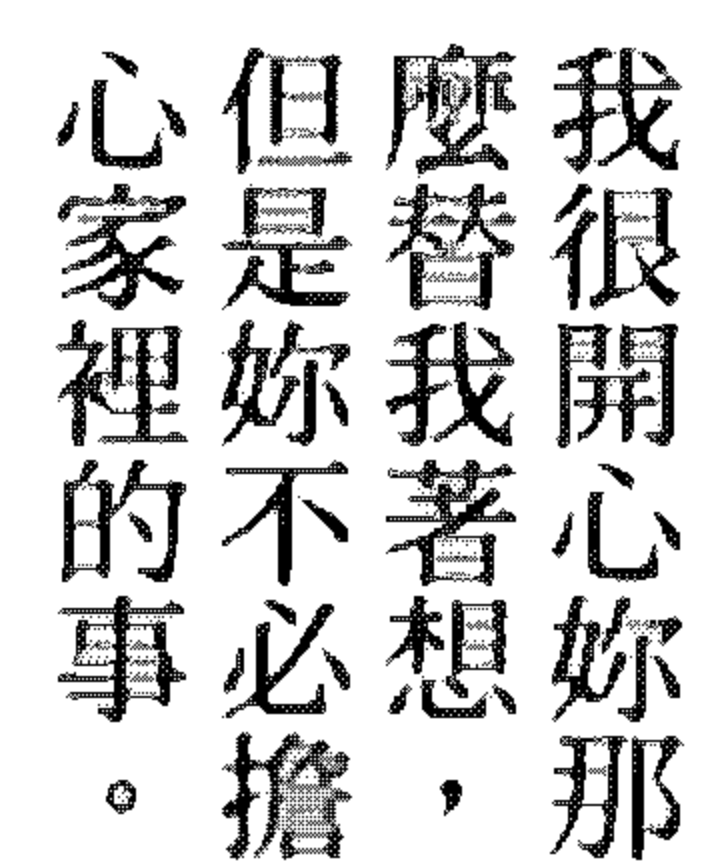 我很開心妳那
麼替我著想，
但是妳不必擔
心家裡的事。